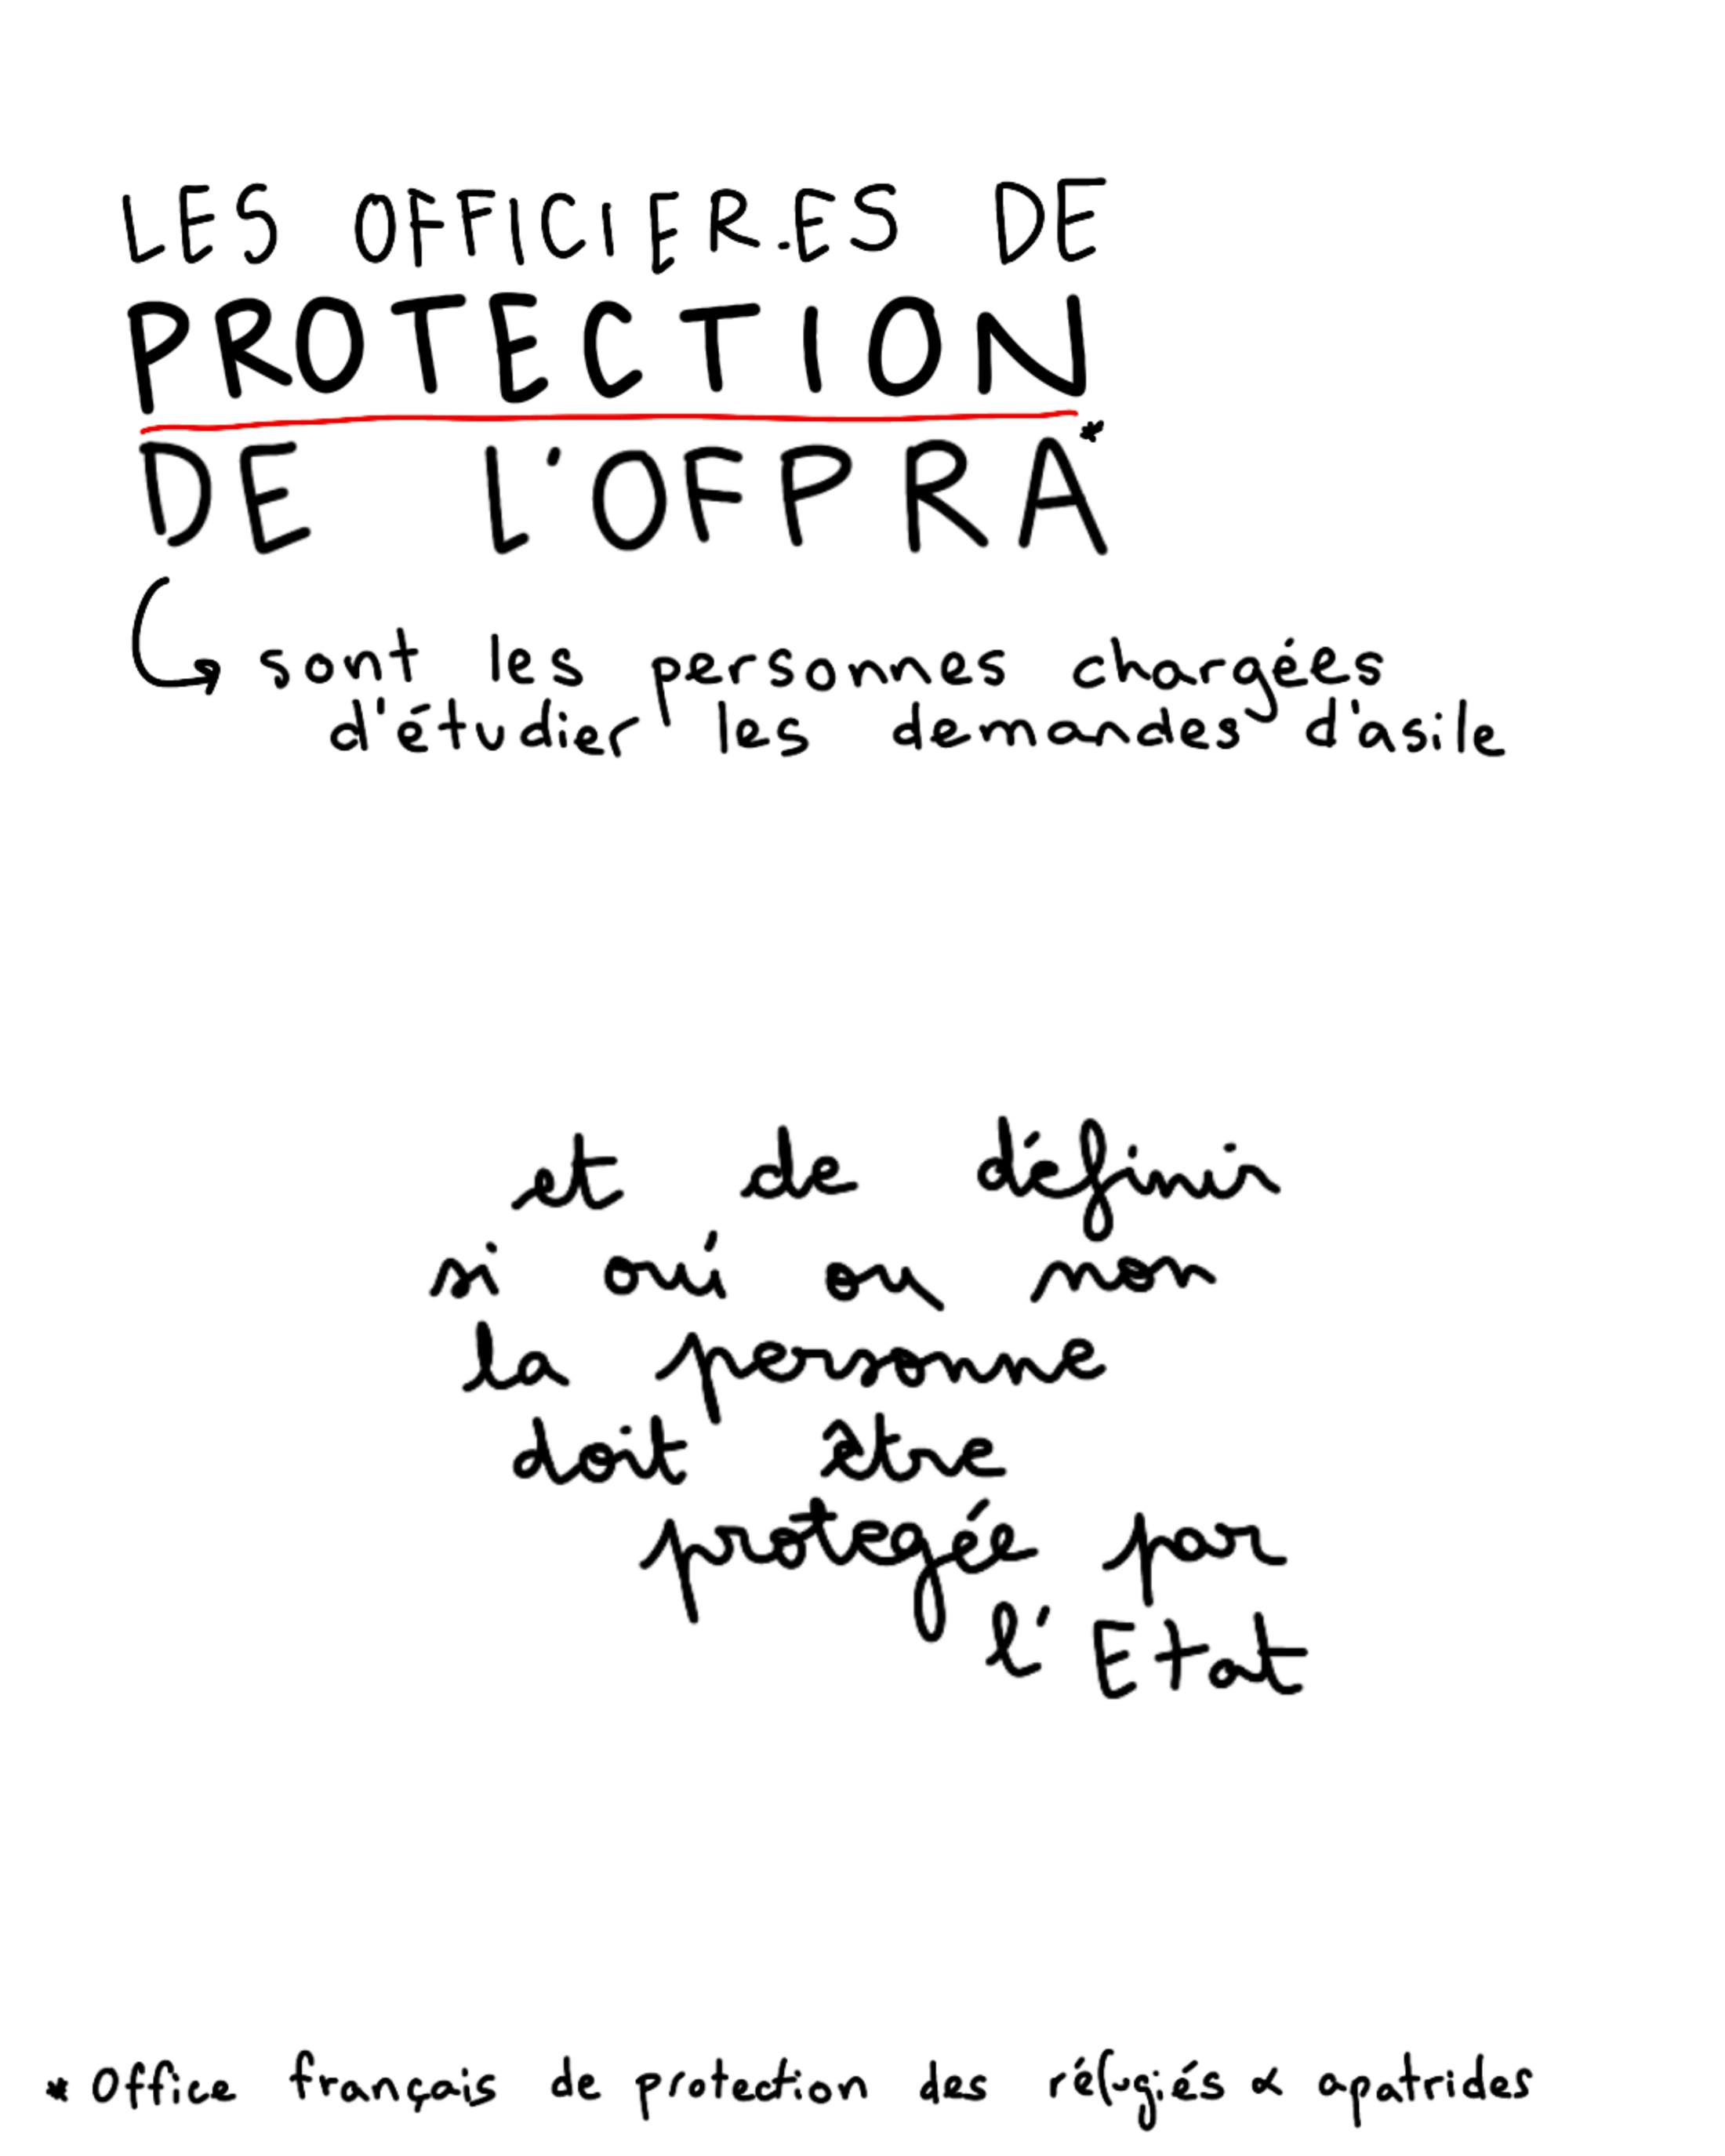 LES OFFICIER.ES DE
PROTECTION
DE L'OFPRA*
sont les personnes chargées
d'étudier les demandes d'asile
et de définir
si oui ou non
la personne
doit être
protegée par
l'Etat
* Office français de protection des réfugiés & apatrides